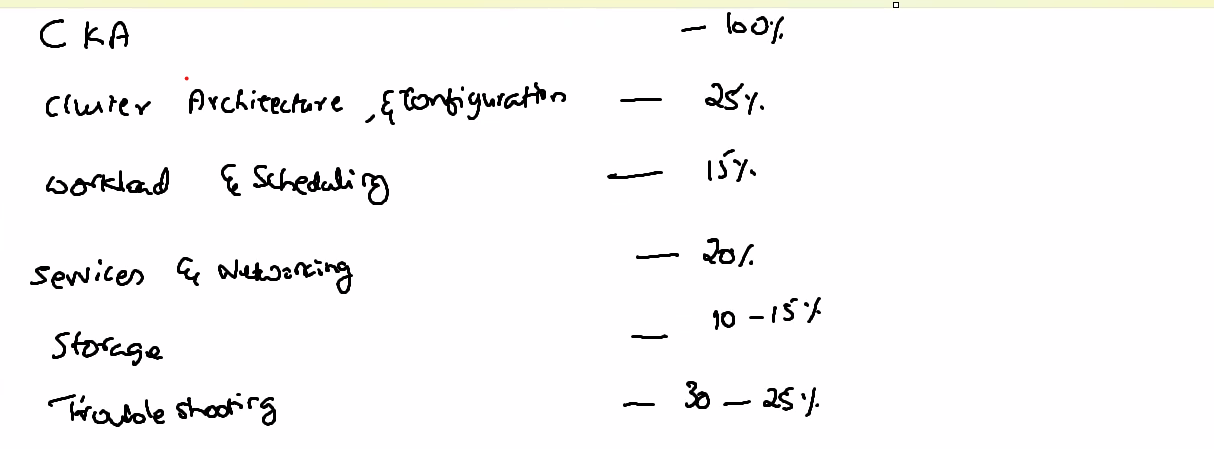 CKA — 100%
Cluster Architecture, & Configuration — 25%.
Workload & Scheduling — 15%.
Services & Networking — 20%.
Storage — 10 - 15%
Trouble shooting — 30 — 25%.